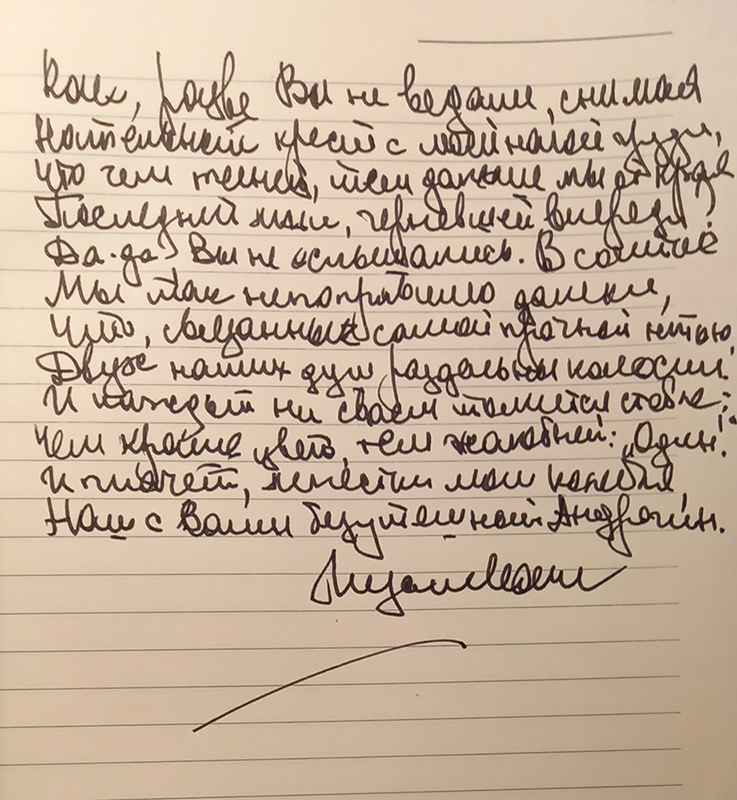 Как, разве Вы не ведали, снимая
Нательный крест с моей нагой груди,
Что чем тесней, тем дальше мы от края
Последней тьмы, черневшей впереди?
Да-да! Вы не ослышались. В соитье
Мы так непоправимо далеки,
Что, связанных самой прочной нитью
Двух наших душ раздельны колоски.
И каждый на своём томится стебле:
Чем краше цвет, тем жалобней: „Один!"
И плачет, лепестки мои колебля,
Наш с Вами безутешный Андрогин.